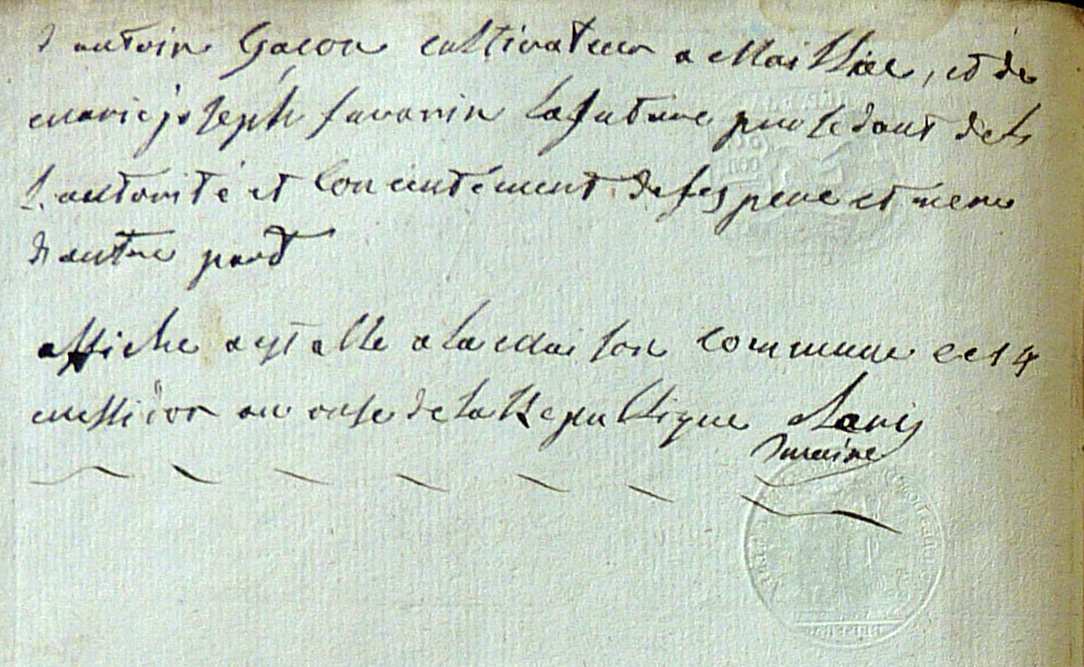 d'antoin Gacon cultivateur a Maillac, et de
marie joseph savarin la future procedant dels
L'autorité et Consentément de ses pere et mere
d'autre part
affiche a st alle a la maison commune le 14
messidor an onse de la Republique
maire